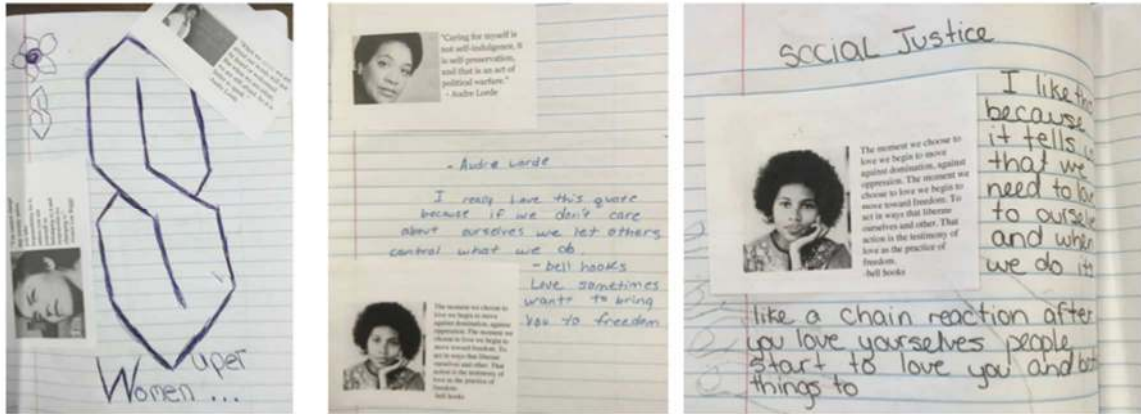 uper
Women ...
"Caring for myself is
not self-indulgence, it
is self-preservation,
and that is an act of
political warfare."
- Audre Lorde
- Audre Lorde
I really Love this quote
because if we don't care
about ourselves we let others
control what we do.
- bell hooks
Love sometimes
wants to bring
you to freedom
The moment we choose to
love we begin to move
against domination, against
oppression. The moment we
choose to love we begin to
move toward freedom. To
act in ways that liberate
ourselves and other. That
action is the testimony of
love as the practice of
freedom.
-bell hooks
SOCIAL Justice
The moment we choose to
love we begin to move
against domination, against
oppression. The moment we
choose to love we begin to
move toward freedom. To
act in ways that liberate
ourselves and other. That
action is the testimony of
love as the practice of
freedom.
-bell hooks
I like
because
it tells
that we
need to
to
and when
we do
like a chain reaction after
you love yourselves people
start to love you and
things to